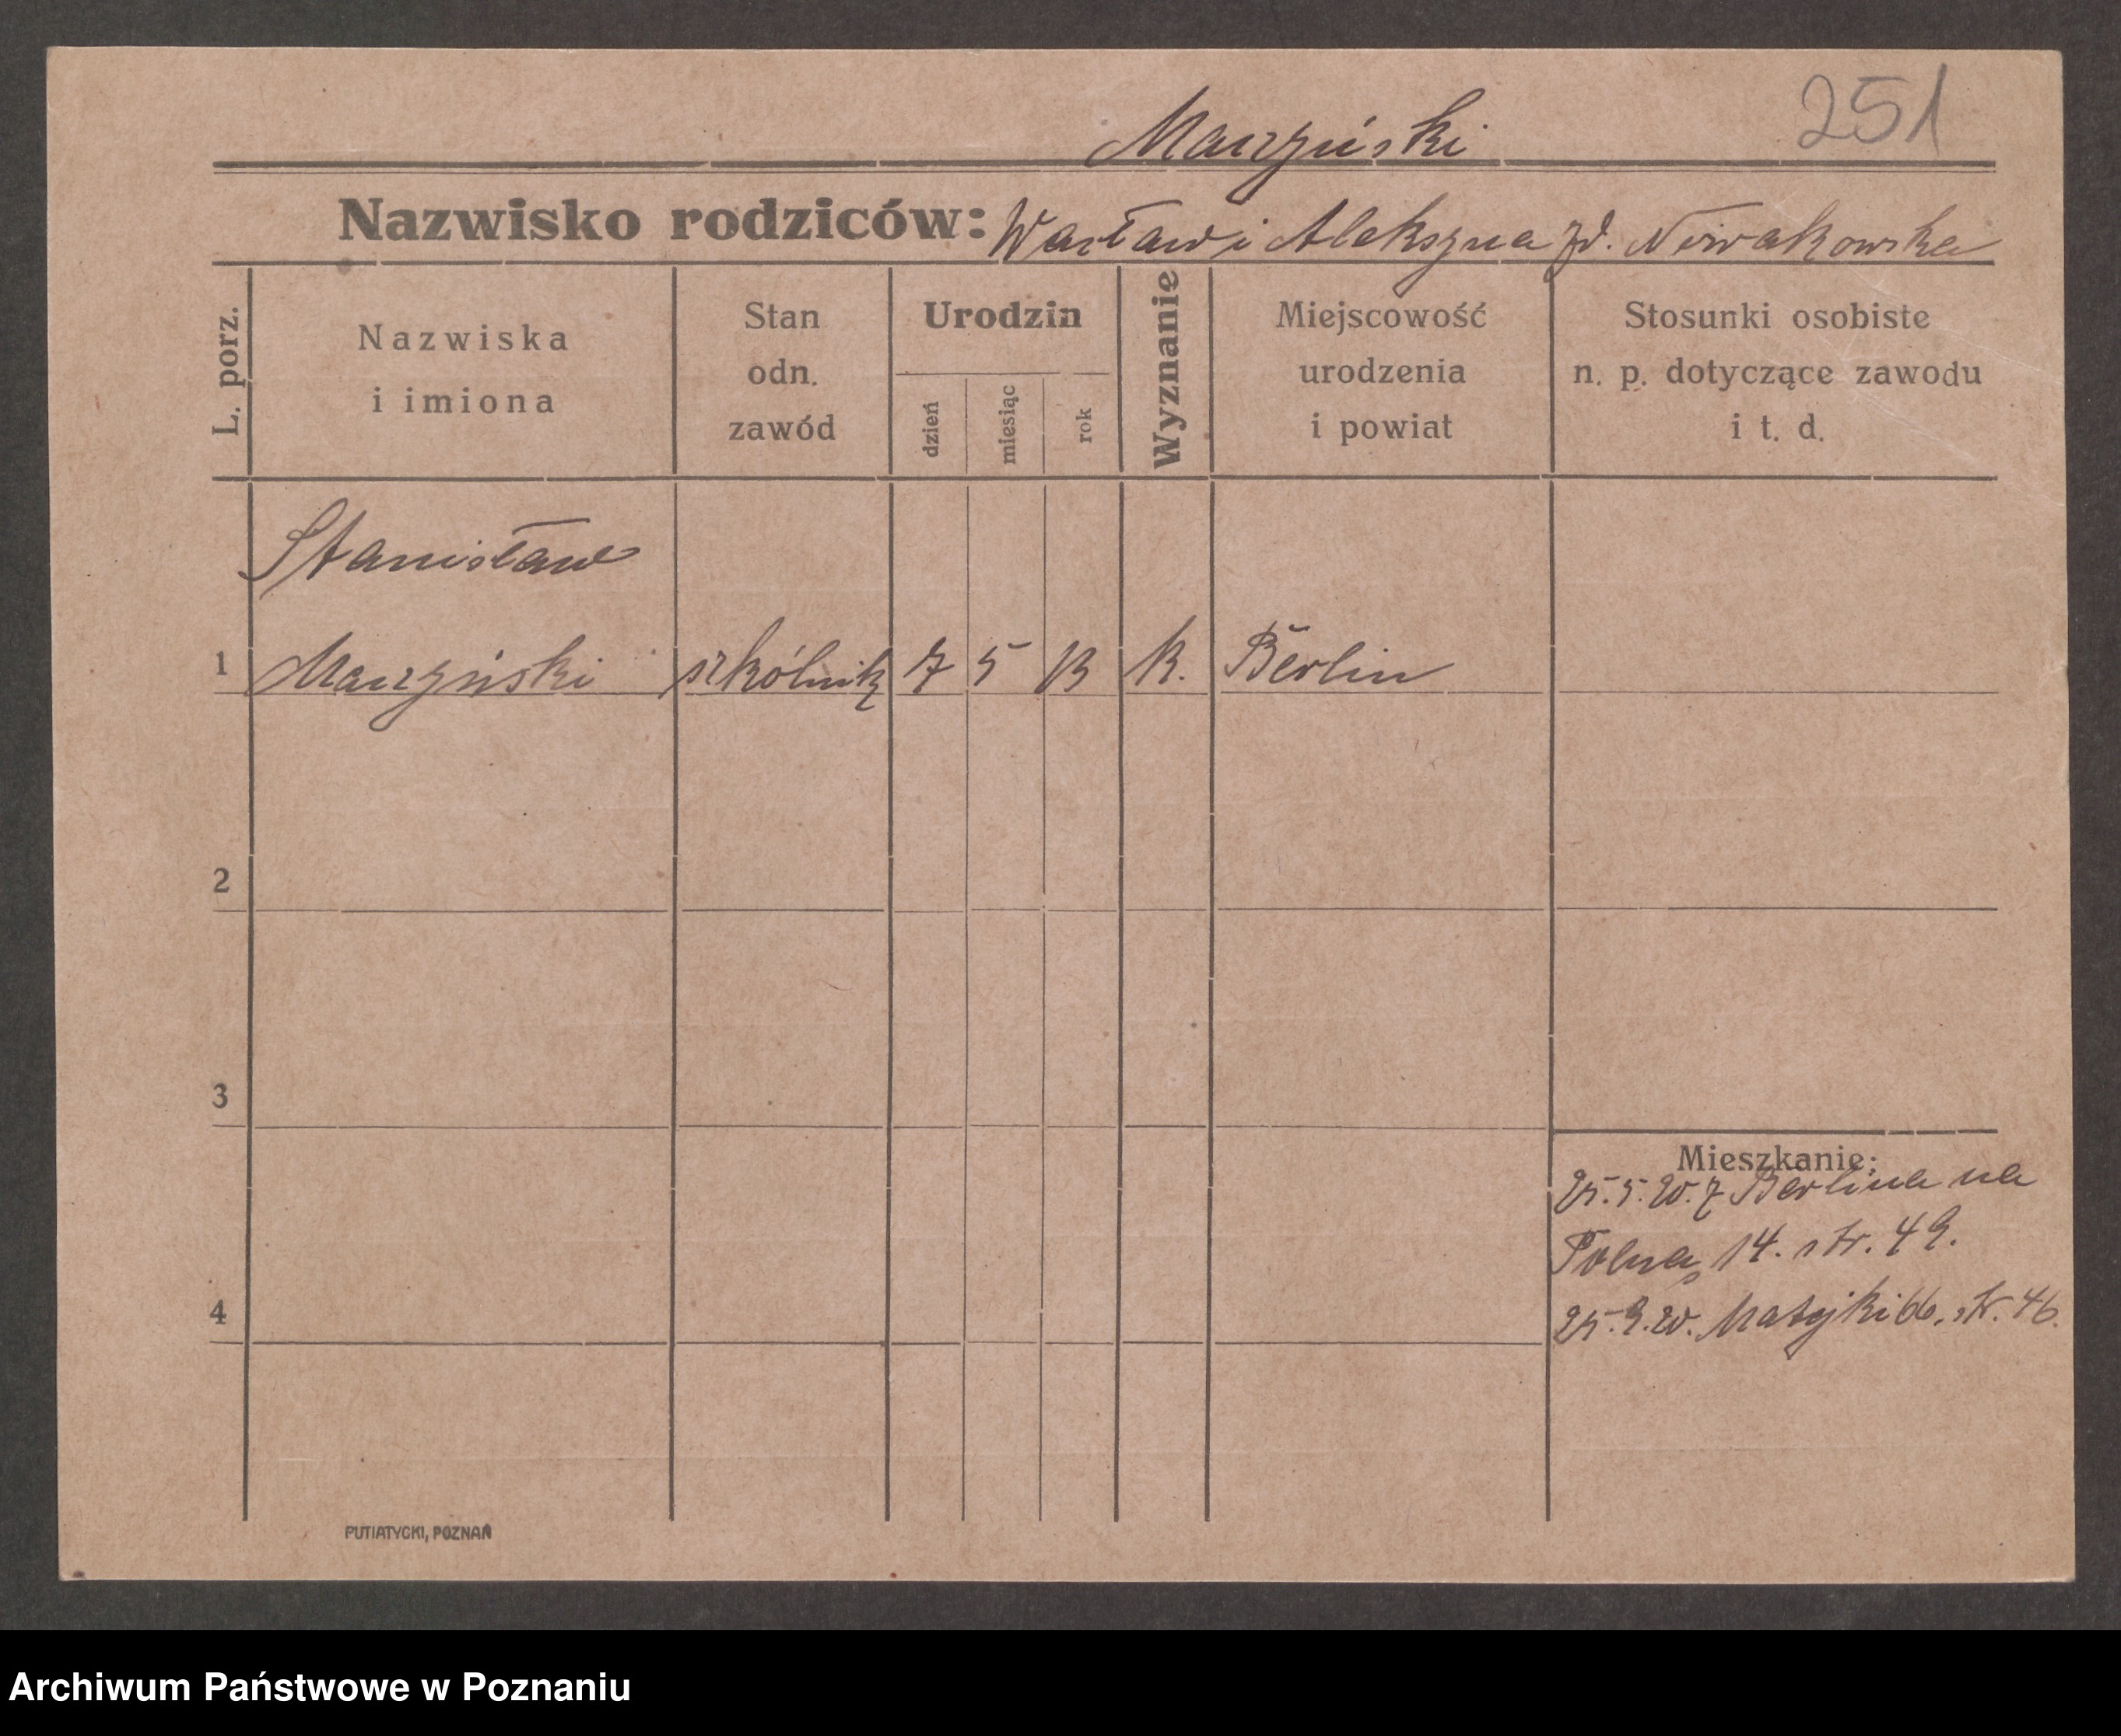 251
Marzyński
Nazwisko rodziców: Wacław i Aleksyna zd. Nowakowska
L. porz.
Nazwiska
i imiona
Stan
odn.
zawód
Urodzin
dzień
miesiąc
rok
Wyznanie
Miejscowość
urodzenia
i powiat
Stosunki osobiste
n. p. dotyczące zawodu
i t. d.
Stanisław
1 Marzyński szkólnik 7 5 13 k. Berlin
2
3
4
Mieszkanie:
25.5.20. z Berlina na
Polna 14. str. 49.
25.9.20. Matejki 66. str. 46.
PUTIATYCKI, POZNAŃ
Archiwum Państwowe w Poznaniu